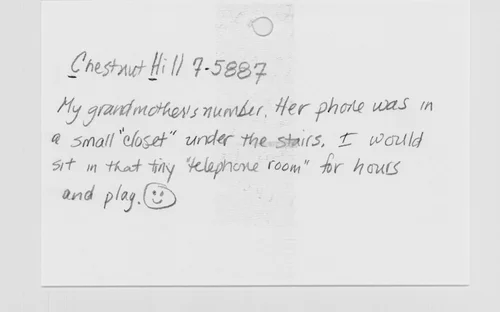 Chestnut Hill 7-5887
My grandmother's number. Her phone was in
a small "closet" under the stairs. I would
sit in that tiny "telephone room" for hours
and play.